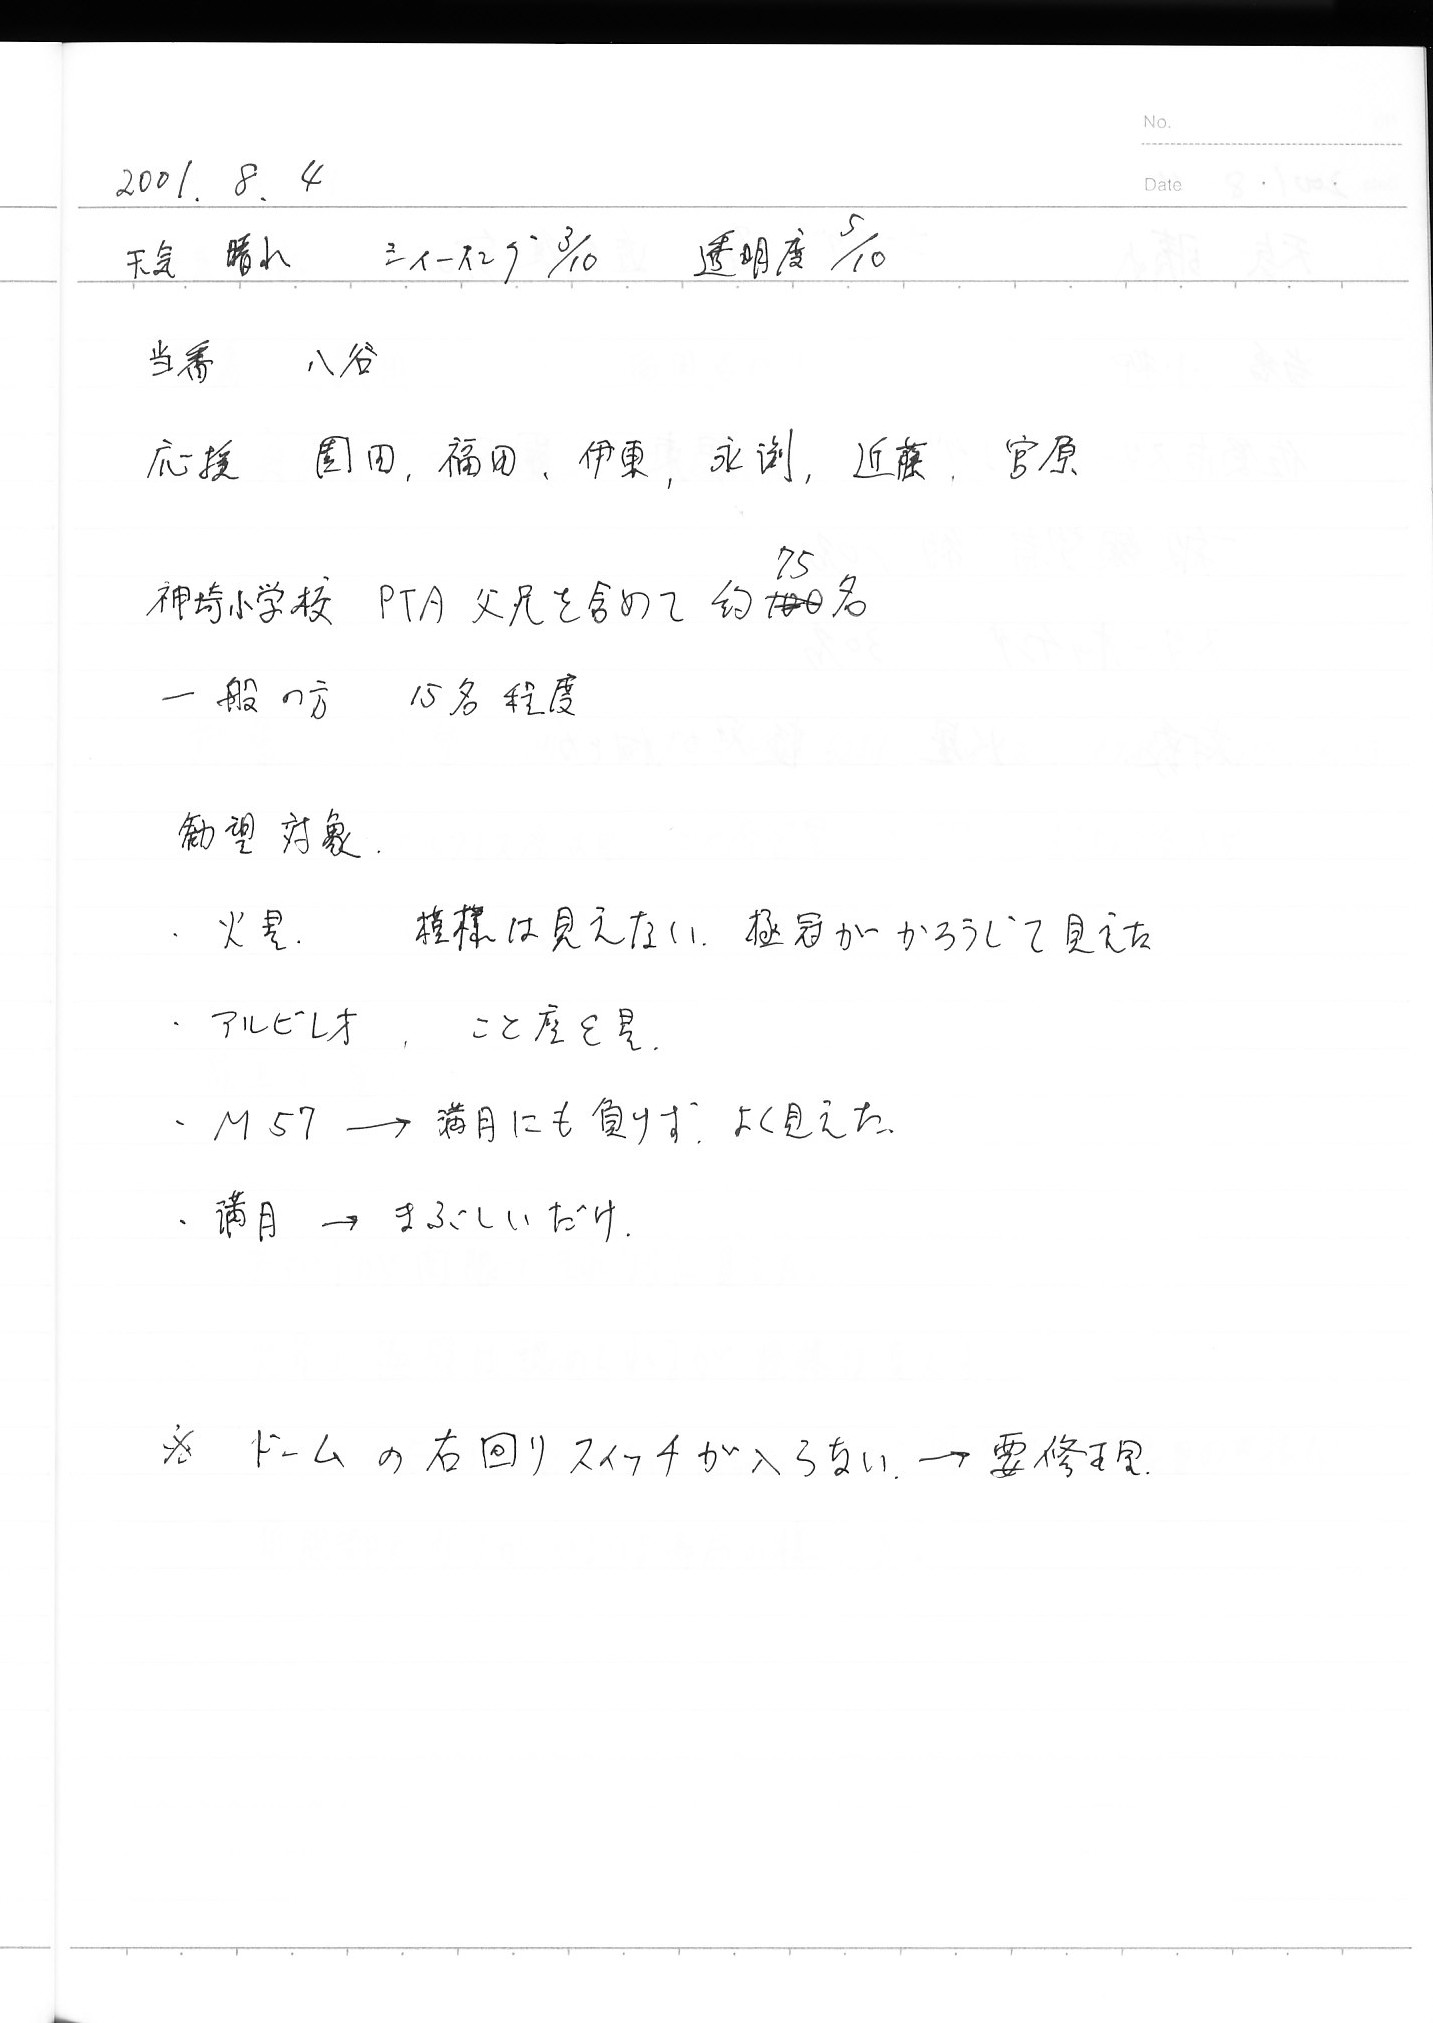 No.
Date
2001. 8. 4
天気 晴れ シィーイング 3/10 透明度 5/10
当番 八谷
応援 園田, 福田、伊東, 永渕, 近藤, 宮原
75
神埼小学校 PTA 父兄を含めて 約100名
一般の方 15名程度
観望対象.
・火星. 模様は見えない. 極冠がかろうじて見えた
・アルビレオ, こと座ε星.
・M57 → 満月にも負けず. よく見えた.
・満月 → まぶしいだけ.
※ ドームの右回りスイッチが入らない. → 要修理.